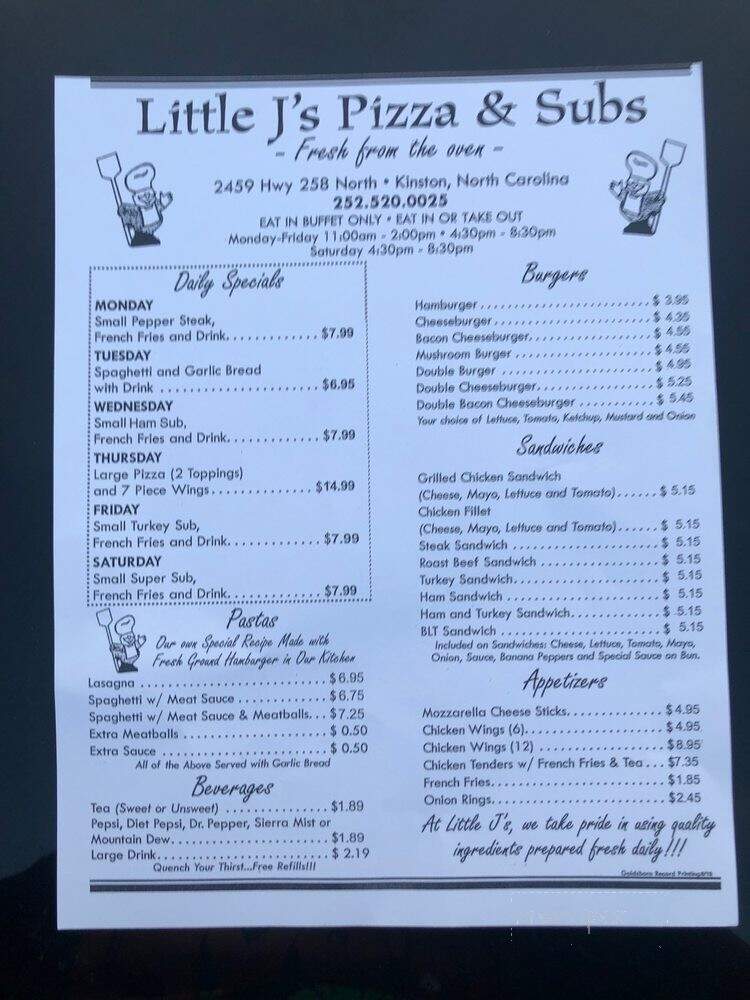 Little J's Pizza & Subs
- Fresh from the oven -
2459 Hwy 258 North • Kinston, North Carolina
252.520.0025
EAT IN BUFFET ONLY • EAT IN OR TAKE OUT
Monday-Friday 11:00am - 2:00pm • 4:30pm - 8:30pm
Saturday 4:30pm - 8:30pm
Daily Specials
MONDAY
Small Pepper Steak,
French Fries and Drink. . . . . . . . . . . . . $7.99
TUESDAY
Spaghetti and Garlic Bread
with Drink . . . . . . . . . . . . . . . . . . . . . $6.95
WEDNESDAY
Small Ham Sub,
French Fries and Drink. . . . . . . . . . . . . $7.99
THURSDAY
Large Pizza (2 Toppings)
and 7 Piece Wings. . . . . . . . . . . . . . $14.99
FRIDAY
Small Turkey Sub,
French Fries and Drink. . . . . . . . . . . . . $7.99
SATURDAY
Small Super Sub,
French Fries and Drink. . . . . . . . . . . . . $7.99
Pastas
Our own Special Recipe Made with
Fresh Ground Hamburger in Our Kitchen
Lasagna . . . . . . . . . . . . . . . . . . . . . . . . . $6.95
Spaghetti w/ Meat Sauce . . . . . . . . . . . . $6.75
Spaghetti w/ Meat Sauce & Meatballs. . . $7.25
Extra Meatballs . . . . . . . . . . . . . . . . . . . $ 0.50
Extra Sauce . . . . . . . . . . . . . . . . . . . . . . $ 0.50
All of the Above Served with Garlic Bread
Beverages
Tea (Sweet or Unsweet) . . . . . . . . . . . . . . $1.89
Pepsi, Diet Pepsi, Dr. Pepper, Sierra Mist or
Mountain Dew. . . . . . . . . . . . . . . . . . . . . $1.89
Large Drink. . . . . . . . . . . . . . . . . . . . . . . $ 2.19
Quench Your Thirst...Free Refills!!!
Burgers
Hamburger . . . . . . . . . . . . . . . . . . . . . . . . $ 3.95
Cheeseburger . . . . . . . . . . . . . . . . . . . . . . $ 4.35
Bacon Cheeseburger. . . . . . . . . . . . . . . . . $ 4.55
Mushroom Burger . . . . . . . . . . . . . . . . . . . $ 4.55
Double Burger . . . . . . . . . . . . . . . . . . . . . $ 4.95
Double Cheeseburger. . . . . . . . . . . . . . . . $ 5.25
Double Bacon Cheeseburger . . . . . . . . . . . $ 5.45
Your choice of Lettuce, Tomato, Ketchup, Mustard and Onion
Sandwiches
Grilled Chicken Sandwich
(Cheese, Mayo, Lettuce and Tomato). . . . . . $ 5.15
Chicken Fillet
(Cheese, Mayo, Lettuce and Tomato). . . . . . $ 5.15
Steak Sandwich . . . . . . . . . . . . . . . . . . . . . $ 5.15
Roast Beef Sandwich . . . . . . . . . . . . . . . . . $ 5.15
Turkey Sandwich. . . . . . . . . . . . . . . . . . . . . $ 5.15
Ham Sandwich . . . . . . . . . . . . . . . . . . . . . . $ 5.15
Ham and Turkey Sandwich. . . . . . . . . . . . . $ 5.15
BLT Sandwich . . . . . . . . . . . . . . . . . . . . . . . $ 5.15
Included on Sandwiches: Cheese, Lettuce, Tomato, Mayo,
Onion, Sauce, Banana Peppers and Special Sauce on Bun.
Appetizers
Mozzarella Cheese Sticks. . . . . . . . . . . . . . $4.95
Chicken Wings (6). . . . . . . . . . . . . . . . . . . . $4.95
Chicken Wings (12) . . . . . . . . . . . . . . . . . . $8.95
Chicken Tenders w/ French Fries & Tea . . . $7.35
French Fries. . . . . . . . . . . . . . . . . . . . . . . . . $1.85
Onion Rings. . . . . . . . . . . . . . . . . . . . . . . . . $2.45
At Little J's, we take pride in using quality
ingredients prepared fresh daily!!!
Goldsboro Record Printing